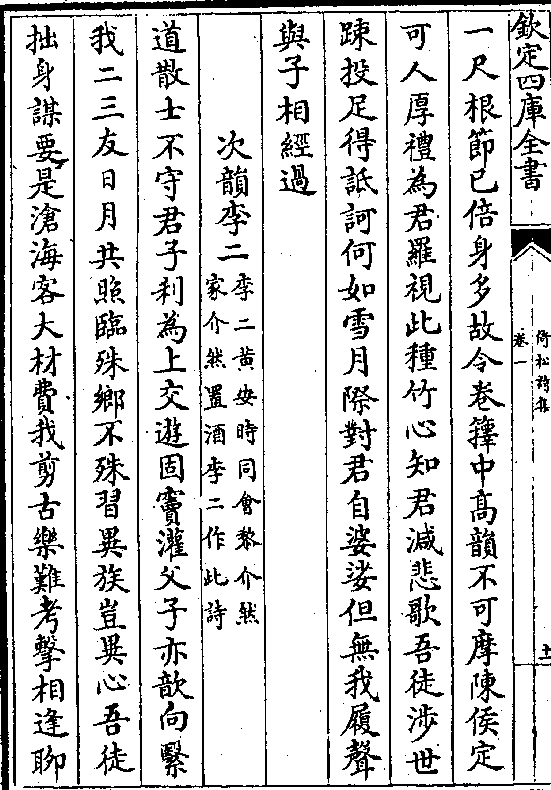 欽定四庫全書
倚松詩集
卷一
十
一尺根節已倍身多故令卷籜中高韻不可摩陳侯定
可人厚禮為君羅視此種竹心知君減悲歌吾徒涉世
踈投足得詆訶何如雪月際對君自婆娑但無我履聲
與子相經過
次韻李二
李二黃安時同會黎介然
家介然置酒李二作此詩
道散士不守君子利為上交遊固竇灌父子亦歆向繫
我二三友日月共照臨殊鄉不殊習異族豈異心吾徒
拙身謀要是滄海客大材費我剪古樂難考擊相逢聊